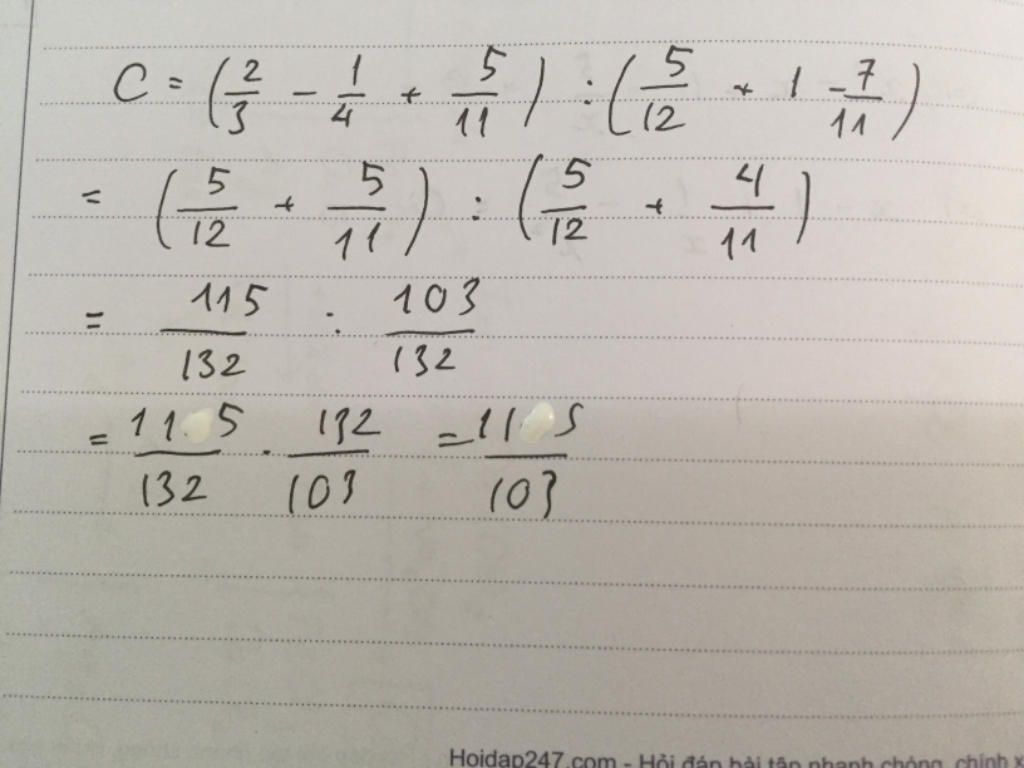 C = (2/3 - 1/4 + 5/11) : (5/12 + 1 - 7/11)
= (5/12 + 5/11) : (5/12 + 4/11)
= 115/132 : 103/132
= 115/132 . 132/103 = 115/103
Hoidap247.com - Hỏi đáp bài tập nhanh chóng, chính x